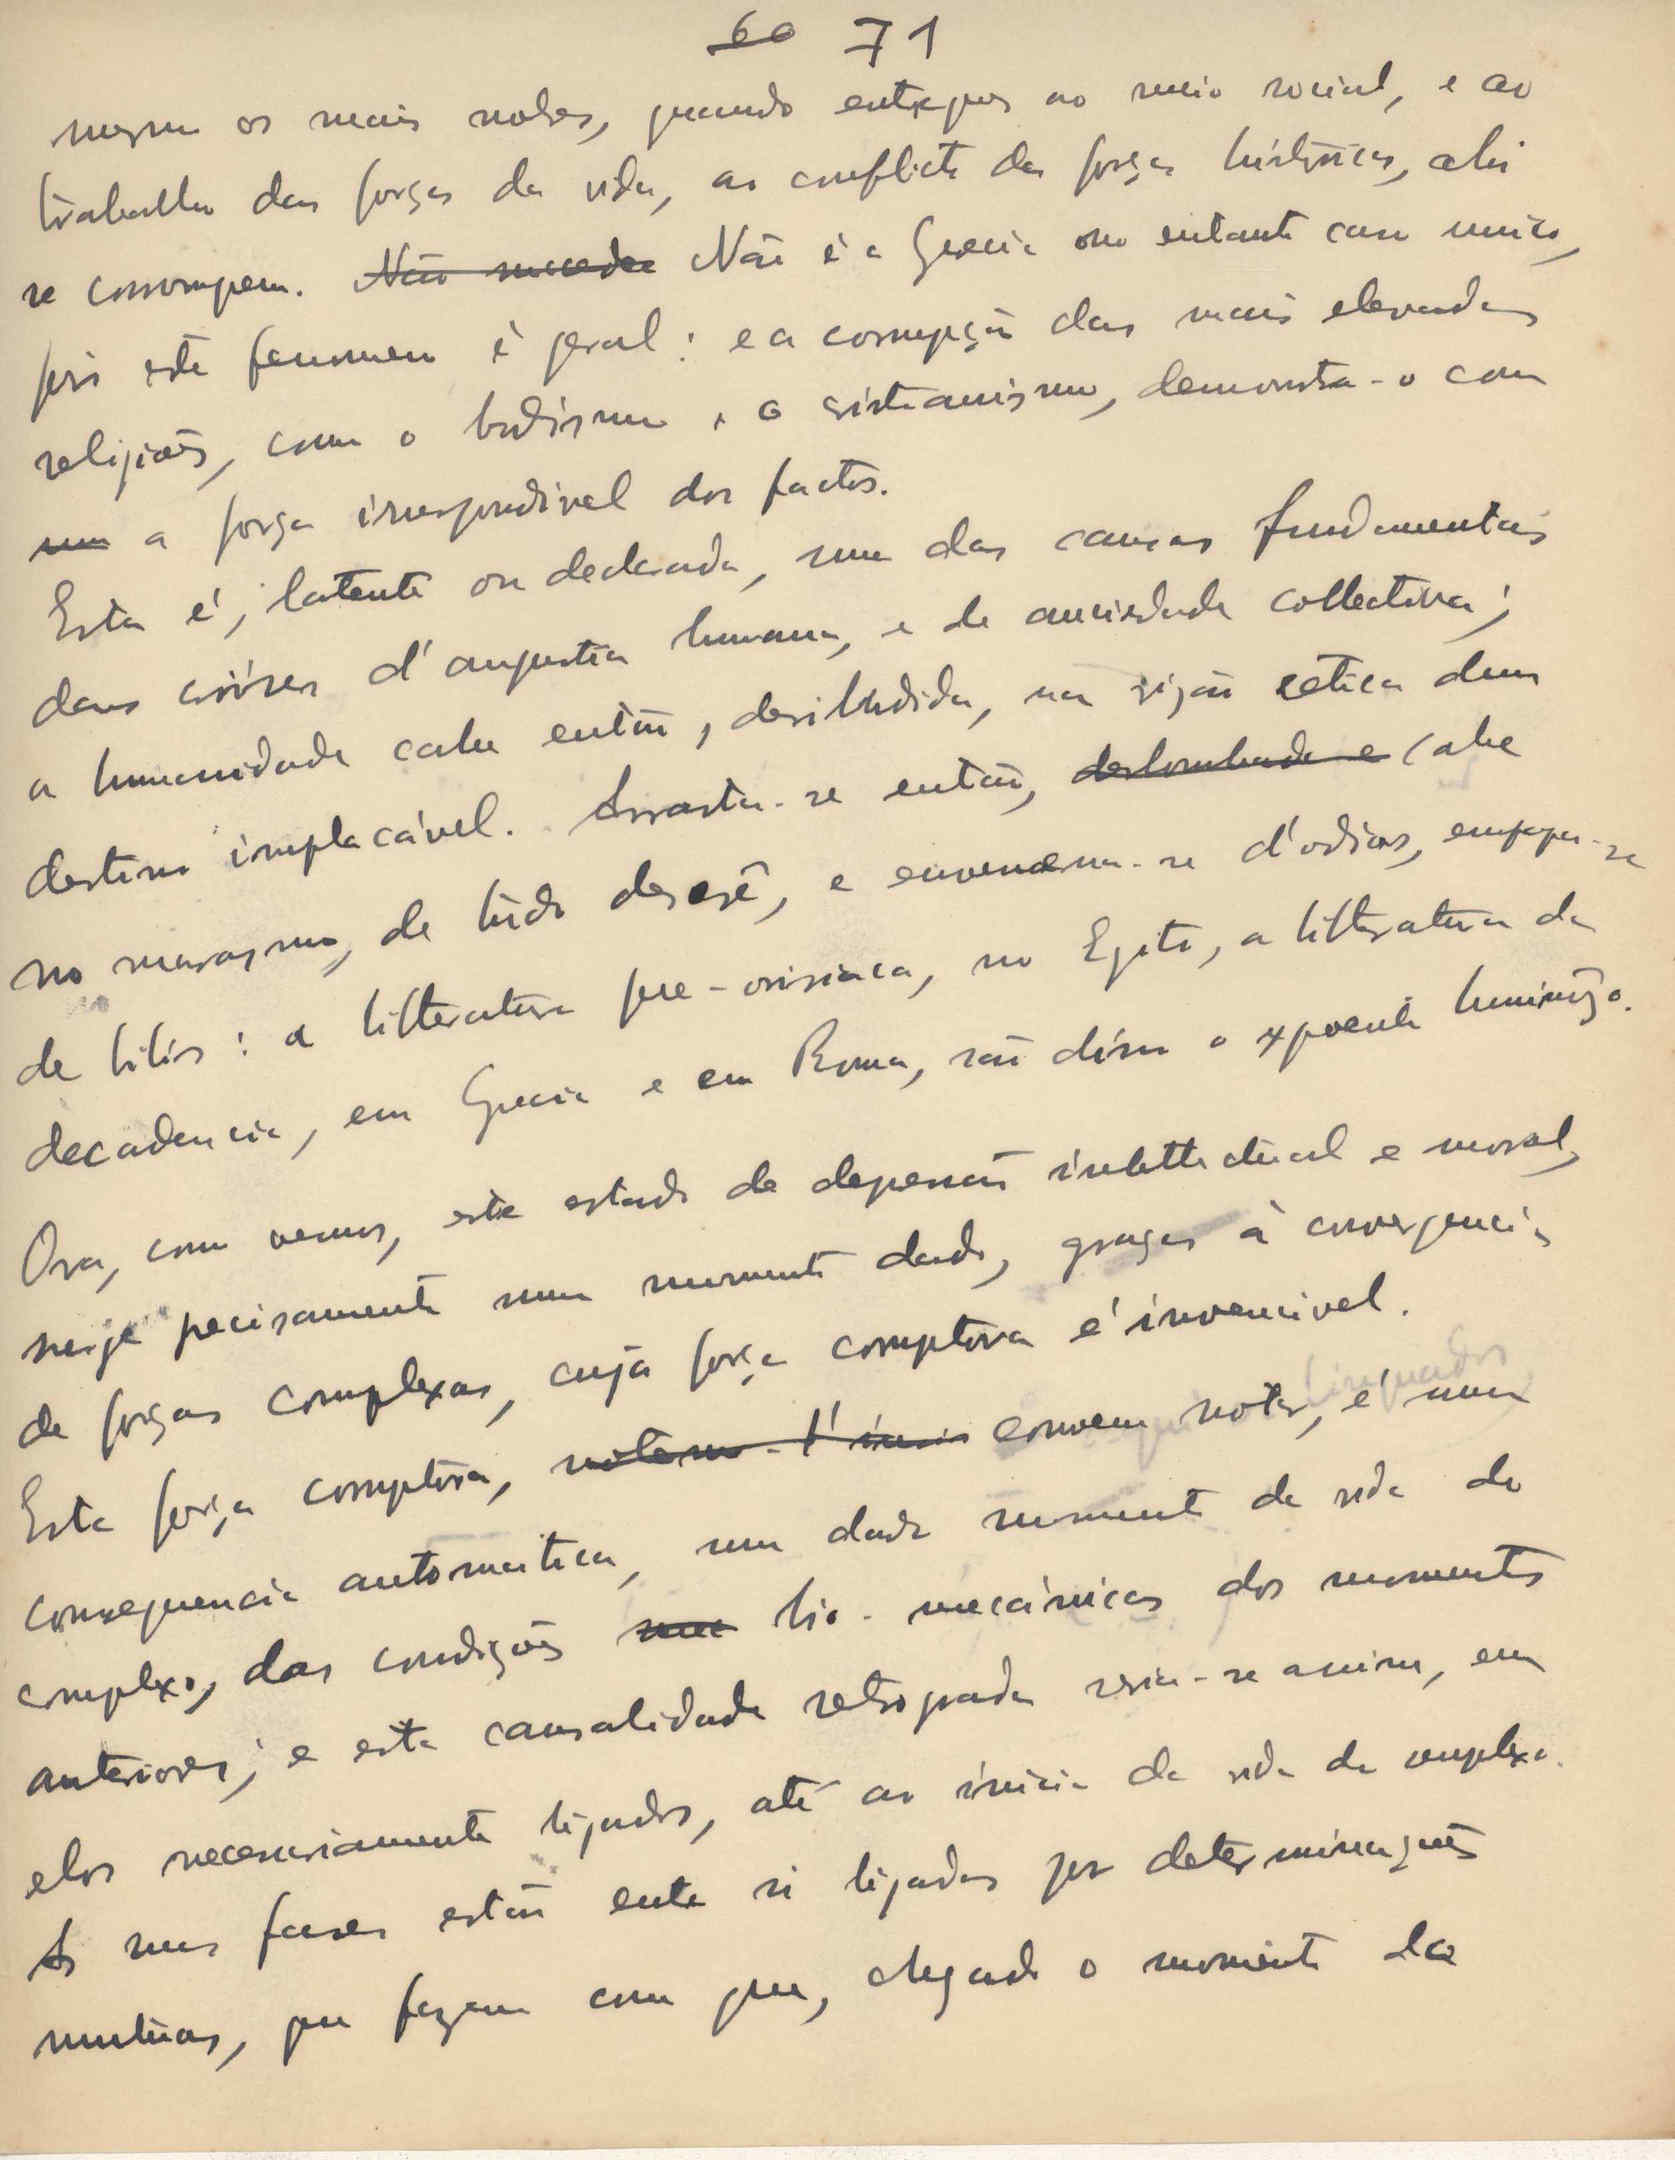 60 71
mesmo os mais nobres, quando entregues ao meio social, e ao
trabalho das forças da vida, ao conflicto das forças históricas, ahi
se corrompem. Não succede Não é a Grecia no entanto caso unico,
pois este fenomeno é geral: e a corrupção das mais elevadas
religiões, como o budismo e o cristianismo, demonstra-o com
a força irrespondivel dos factos.
Esta é, latente ou declarada, uma das causas fundamentais
das crises d'angustia humana, e de anciedade collectiva;
a humanidade cahe então, desilludida, na visão cetica dum
destino implacável. Arrasta-se então, deslumbrada e cahe
no marasmo, de tudo descrê, e envenena-se d'odios, empapa-se
de bilis: a litteratura pre-osiriaca, no Egito, a litteratura da
decadencia, em Grecia e em Roma, são disso o expoente luminoso.
Ora, como vemos, este estado de depressão intellectual e moral,
surge precisamente num momento dado, graças à convergencia
de forças complexas, cuja força corruptora é invencivel.
Esta força corruptora, convem notar, é uma
consequencia automatica, num dado momento da vida do
complexo, das condições bio-mecánicas dos momentos
anteriores; e esta causalidade retrograda vería-se assim, em
elos necessariamente ligados, até ao inicio da vida do complexo.
As suas fases estão entre si ligadas por determinações
mutuas, que fazem com que, chegado o momento da